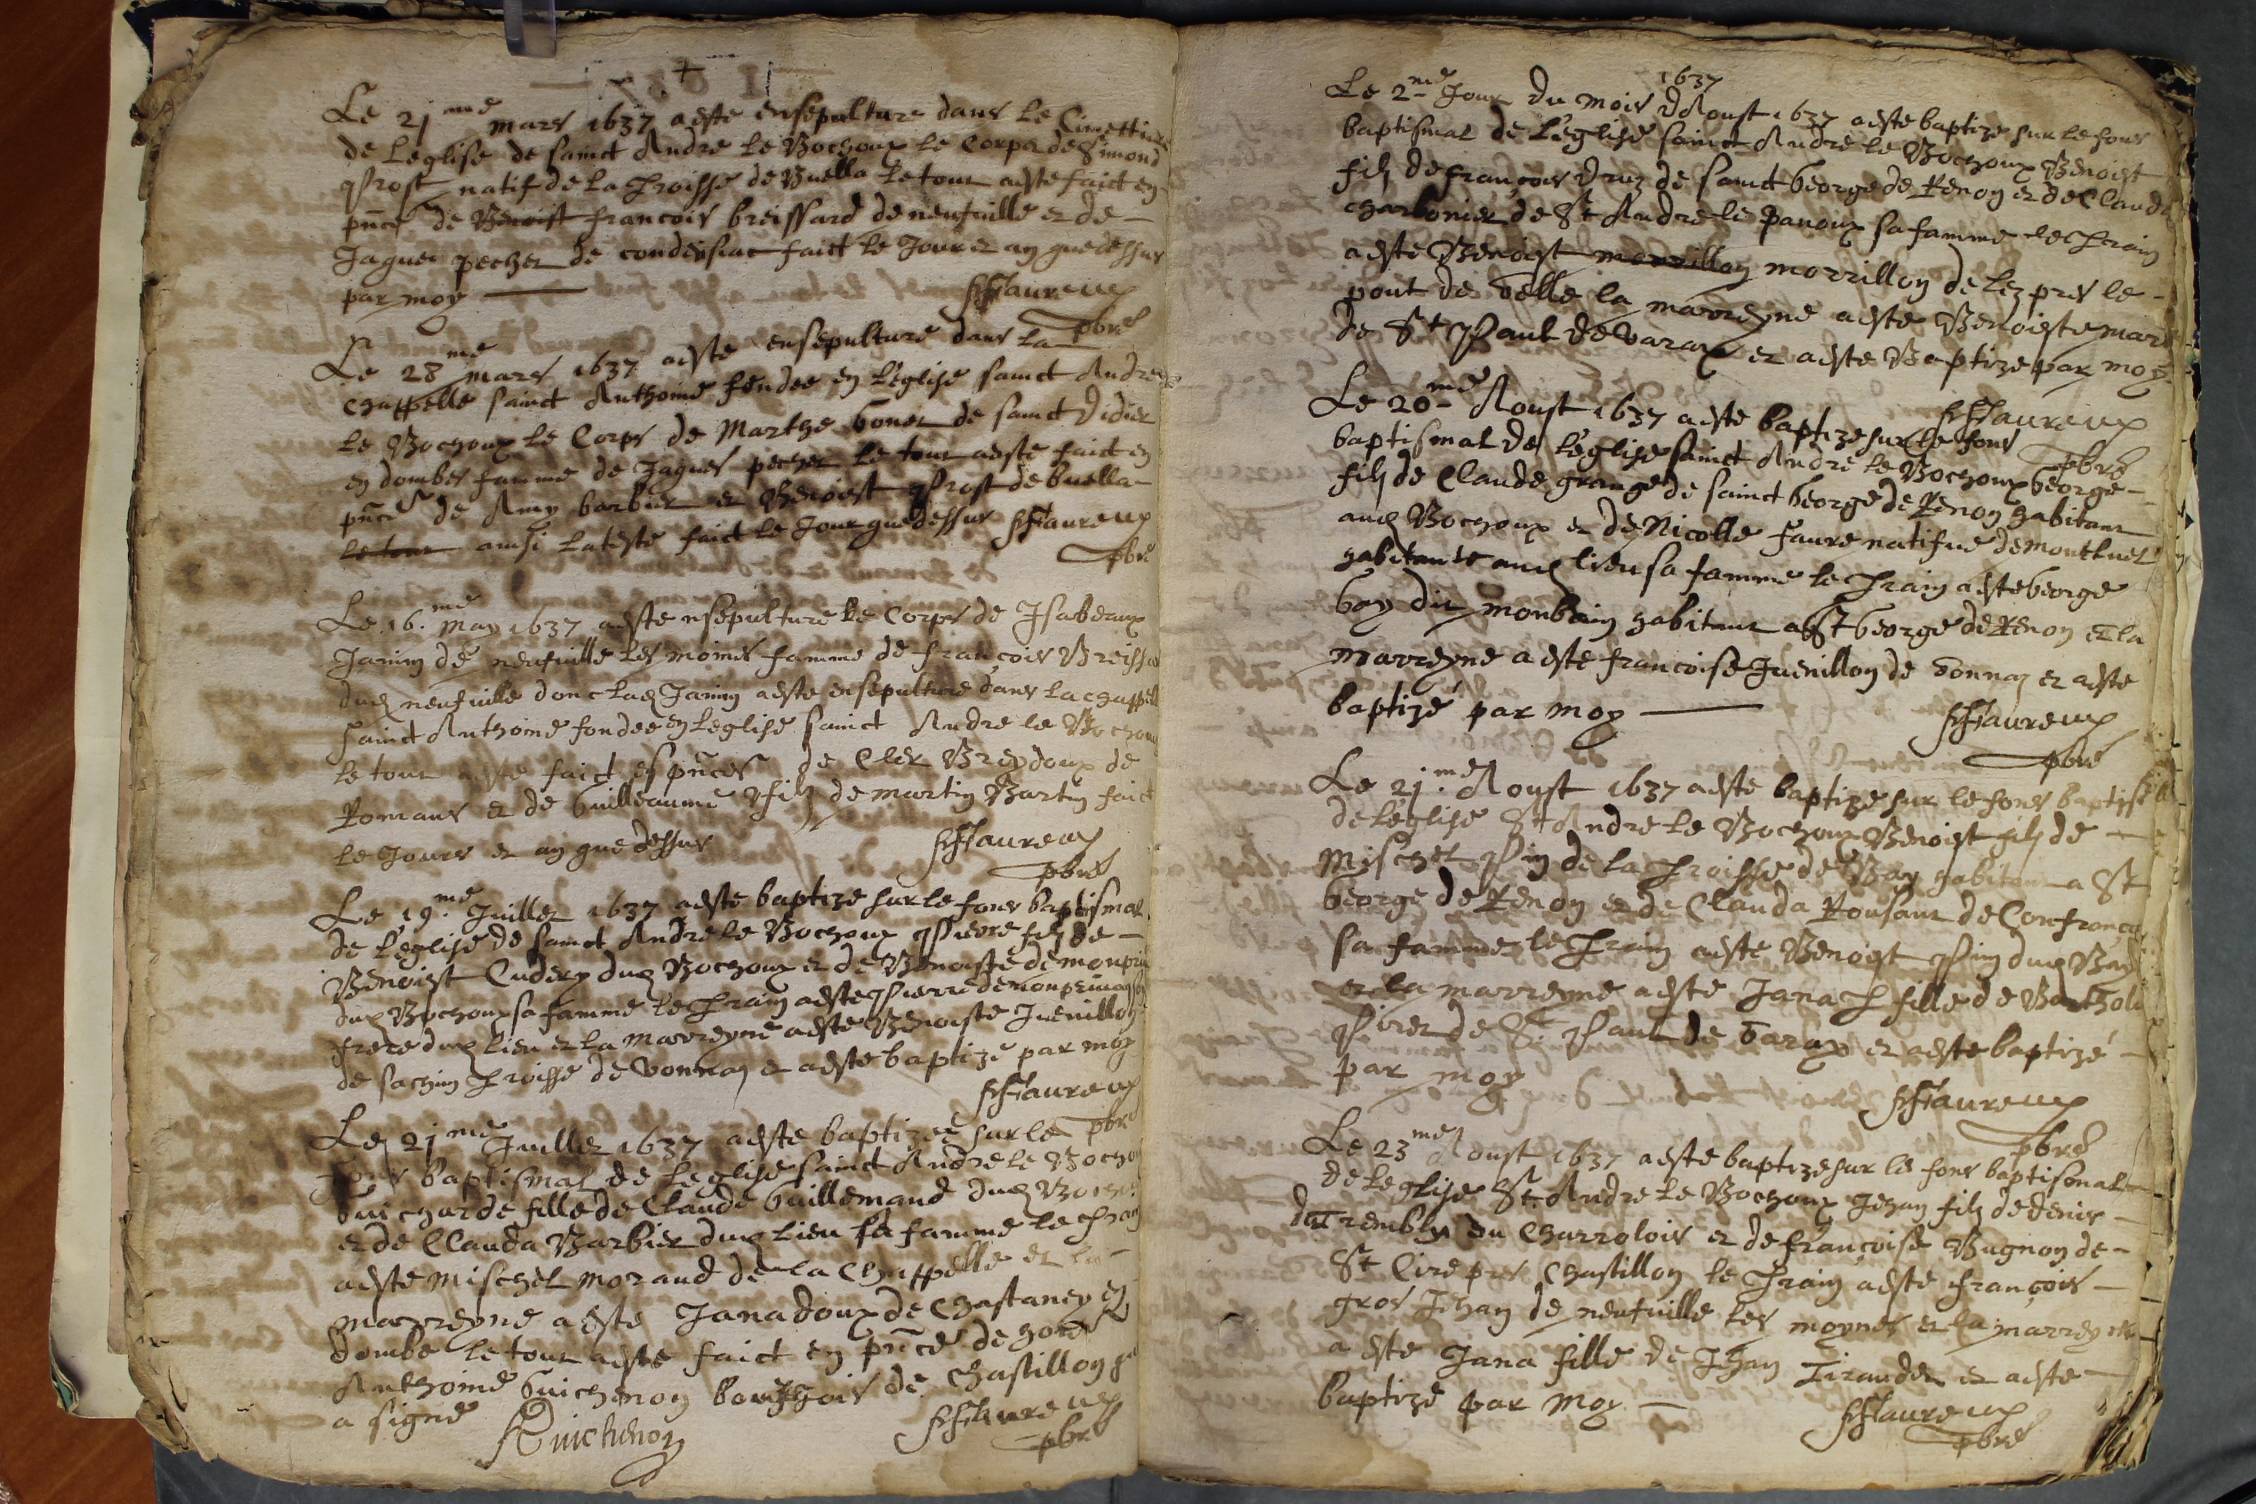 Le 21me mars 1637 aeste ensepulture dans le Cimettiere
de Leglise de sainct Andre le Bochoux le Corps de Simond
Prost natif de la Proisse de Buella le tout aeste faict en
pnce de Benoist francois breissard de neufuille et de
Jaques pecher de condeysiat faict le Jour et an que dessus
par moy
Ffaureux
pbre
Le 28me mars 1637 aeste ensepulture dans la
chappelle sainct Anthoine fondee en l'eglise sainct Andre
le Bochoux le Corps de Marthe bonet de sainct Didier
en dombes famme de Jaques pecher le tout aeste faict en
pnce de Amy barbier et Benoist Prost de buella
le tout ainsi lateste faict le Jour que dessus Ffaureux
pbre
Le 16.me may 1637 aeste nsepulture le Corps de Isabeaux
Janin de neufuille les moines famme de francois Breissa
dud neufuille donc lad Janin aeste ensepulture dans la chappelle
sainct Anthoine fondee en leglise sainct Andre le Bochoux
le tout aeste faict es pnces de Cler Breydoux de
Romans et de Guilleaume filz de martin Bartin faict
le Jours et an que dessus
Ffaureux
pbre
Le 19.me Juillet 1637 aeste baptize sur le fons baptismal
de l'eglise de sainct Andre le Bochoux Pierre filz de
Benoist Cudery dud Bochoux et de Benoiste de
dud Bochoux sa famme le Prain aeste Pierre de
frere dud lieu et la marreyne aeste Benoiste Juenillon
de sachin Proisse de vonnaz et aeste baptizé par moy
Ffaureux
pbre
Le 21me Juillet 1637 aeste baptizée sur le
fons baptismal de Leglise sainct Andre le Bochoux
Guicharde fille de Claude Guillemaud dud Bochoux
et de Clauda Barbier dud lieu sa famme le Prain
aeste mischel moraud de la Chappelle et la
marreyne aeste Jana doux de Chastaney en
Dombe le tout aeste faict en pnce de hon
Anthoine Guichenon bourghois de Chastillon qui
a signe
Guichenon
Ffaureux
pbre
1637
Le 2me Jour du mois d'Aoust 1637 aeste baptize sur le fons
baptismal de l'eglise sainct Andre le Bochoux Benoist
filz de francois Druz de sainct George de Renon et de Claude
charbonier de St Andre le Panoux sa famme le Prain
aeste Benoist morrillon morrillon de lez pres le
pont de velle la marreyne aeste Benoiste mar
de St Paul de varax et aeste Baptize par moy
Ffaureux
pbre
Le 20me Aoust 1637 aeste baptize sur le fons
baptismal de l'eglise sainct Andre le Bochoux George
filz de Claude grange de sainct George de Renon habitant
aud Bochoux et de Nicolle faure natifue de montluel
habitante aud lieu sa famme le Prain aeste George
Gay dit monbain habitant a St George de Renon et la
marreyne aeste francoise Juenillon de vonnaz et aeste
baptizé par moy
Ffaureux
pbre
Le 21.me Aoust 1637 aeste baptizé sur le fons baptismal
de l'eglise St Andre le Bochoux Benoist filz de
Mischel Pin de la Proisse de Bay habitant a St
George de Renon et de Clauda Rousaut de Confrançon
sa famme le Prain aeste Benoist Pin dud Bay
et la marreyne aeste Jana P fille de Barthole
Piret de St Paul de Varax et aeste baptizé
par moy
Ffaureux
pbre
Le 23me Aoust 1637 aeste baptize sur le fons baptismal
de Leglise St Andre le Bochoux Jehan filz de denis
du Tremblay en Charrolois et de francoise Bugnon de
St Cire pres Chastillon le Prain aeste francois
gros Jehan de neufuille les moynes et la marreyne
aeste Jana fille de Jehan Tiraudet et aeste
baptizé par moy
Ffaureux
pbre